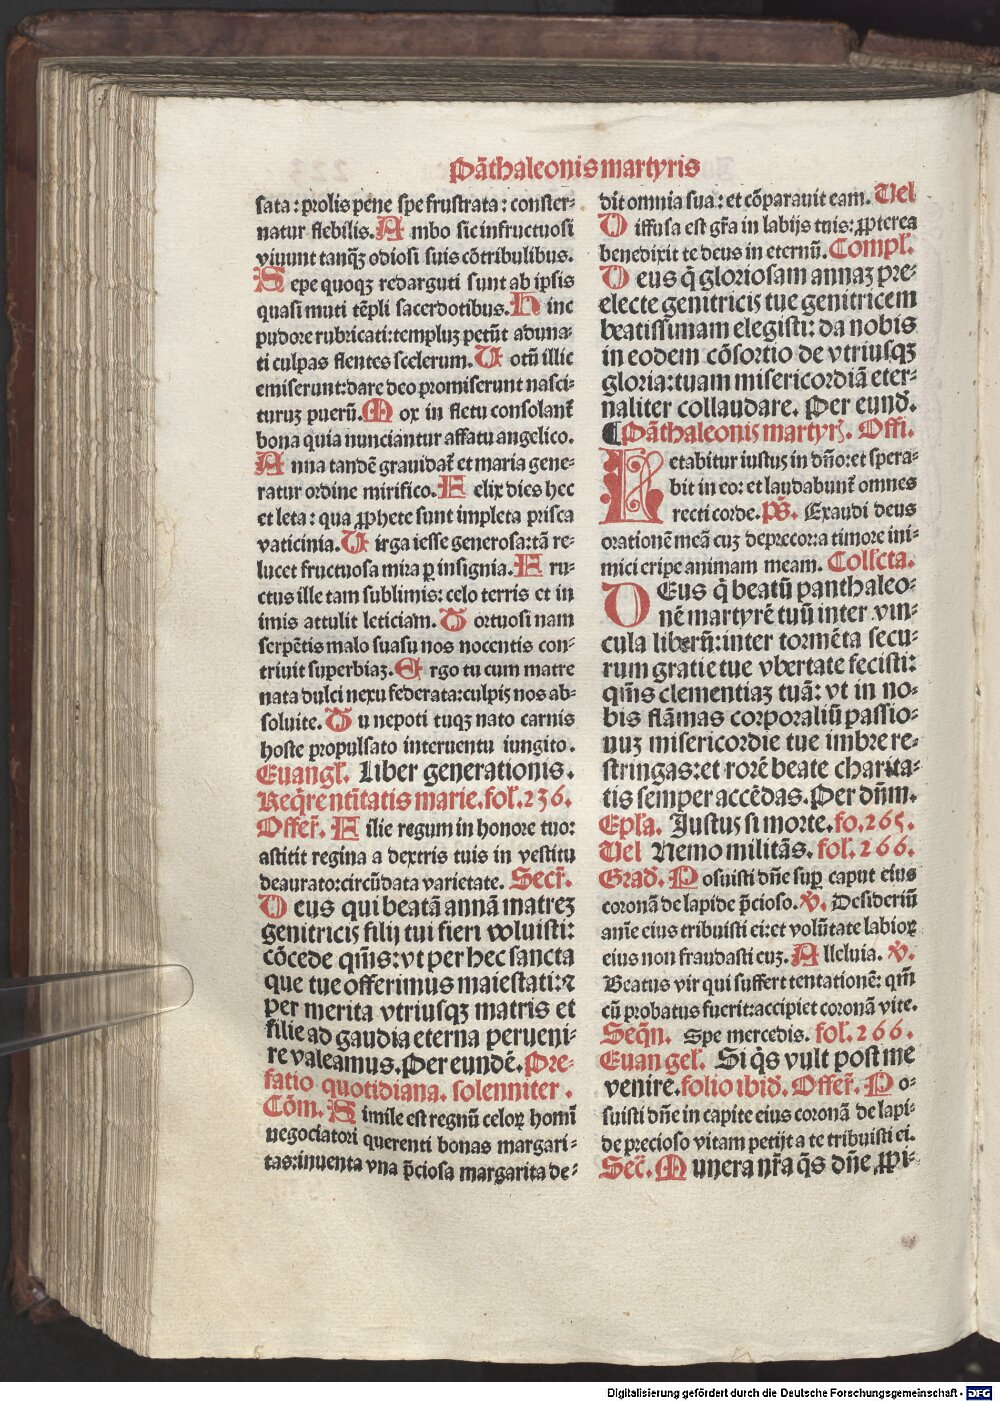 Pãthaleonis martyris
sata : prolis pene spe frustrata : conster⸗
natur flebilis. Ambo sic infructuosi
viuunt tanqȝ odiosi suis cõtribulibus.
Sepe quoqȝ redarguti sunt ab ipsis
quasi muti tẽpli sacerdotibus. Hinc
pudore rubricati: templuȝ petũt aduna⸗
ti culpas flentes scelerum. Uotũ illic
emiserunt: dare deo promiserunt nasci⸗
turuȝ puerũ. Mox in fletu consolant᷑
bona quia nunciantur affatu angelico.
Anna tandẽ grauidat᷑ et maria gene⸗
ratur ordine mirifico. Felix dies hec
et leta : qua ꝓphete sunt impleta prisca
vaticinia. Uirga iesse generosa: tã re⸗
lucet fructuosa mira ꝑ insignia. Fru⸗
ctus ille tam sublimis: celo terris et in
imis attulit leticiam. Tortuosi nam
serpẽtis malo suasu nos nocentis con⸗
triuit superbiaȝ. Ergo tu cum matre
nata dulci nexu federata: culpis nos ab⸗
soluite. Tu nepoti tuqȝ nato carnis
hoste propulsato interuentu iungito.
Euangl᷑. Liber generationis.
Req̃re ntĩtatis marie. fol᷑. 236.
Offer᷑. Filie regum in honore tuo:
astitit regina a dextris tuis in vestitu
deaurato: circũdata varietate. Secr᷑.
Deus qui beatã annã matreȝ
genitricis filij tui fieri voluisti:
cõcede qm̃s: vt per hec sancta
que tue offerimus maiestati: ⁊
per merita vtriusqȝ matris et
filie ad gaudia eterna perueni⸗
re valeamus. Per eundẽ. Pre⸗
fatio quotidiana. solenniter.
Cõm. Simile est regnũ celoꝝ homĩ
negociatori querenti bonas margari⸗
tas: inuenta vna p̃ciosa margarita de⸗
dit omnia sua: et cõparauit eam. Uel
Diffusa est gr̃a in labijs tuis: ꝓpterea
benedixit te deus in eternũ. Compl᷑.
Deus q̃ gloriosam annaȝ pre⸗
electe genitricis tue genitricem
beatissimam elegisti: da nobis
in eodem cõsortio de vtriusqȝ
gloria: tuam misericordiã eter⸗
naliter collaudare. Per eund᷑.
¶Pãthaleonis martyr᷑. Offi.
Letabitur iustus in dño: et spera⸗
bit in eo: et laudabunt᷑ omnes
recti corde. Ps̃. Exaudi deus
orationẽ meã cuȝ deprecor: a timore ini⸗
mici eripe animam meam. Coll᷑cta.
DEus q̃ beatũ panthaleo⸗
nẽ martyrẽ tuũ inter vin⸗
cula liberũ: inter tormẽta secu⸗
rum gratie tue vbertate fecisti:
qm̃s clementiaȝ tuã: vt in no⸗
bis flãmas corporaliũ passio⸗
nuȝ misericordie tue imbre re⸗
stringas: et rorẽ beate charita⸗
tis semper accẽdas. Per dñm.
Epl̃a. Justus si morte. fo. 265.
Uel Nemo militãs. fol᷑. 266.
Grad᷑. Posuisti dñe suꝑ caput eius
coronã de lapide p̃cioso. ℣. Desideriũ
aĩe eius tribuisti ei: et volũtate labioꝝ
eius non fraudasti euȝ. Alleluia. ℣.
Beatus vir qui suffert tentationẽ: qm̃
cũ probatus fuerit: accipiet coronã vite.
Seq̃n. Spe mercedis. fol᷑. 266.
Euangel᷑. Si q̃s vult post me
venire. folio ibid᷑. Offer᷑. Po⸗
suisti dñe in capite eius coronã de lapi⸗
de precioso vitam petijt a te tribuisti ei.
Sec᷑. Munera nr̃a q̃s dñe ꝓpi⸗
Digitalisierung gefördert durch die Deutsche Forschungsgemeinschaft - DFG